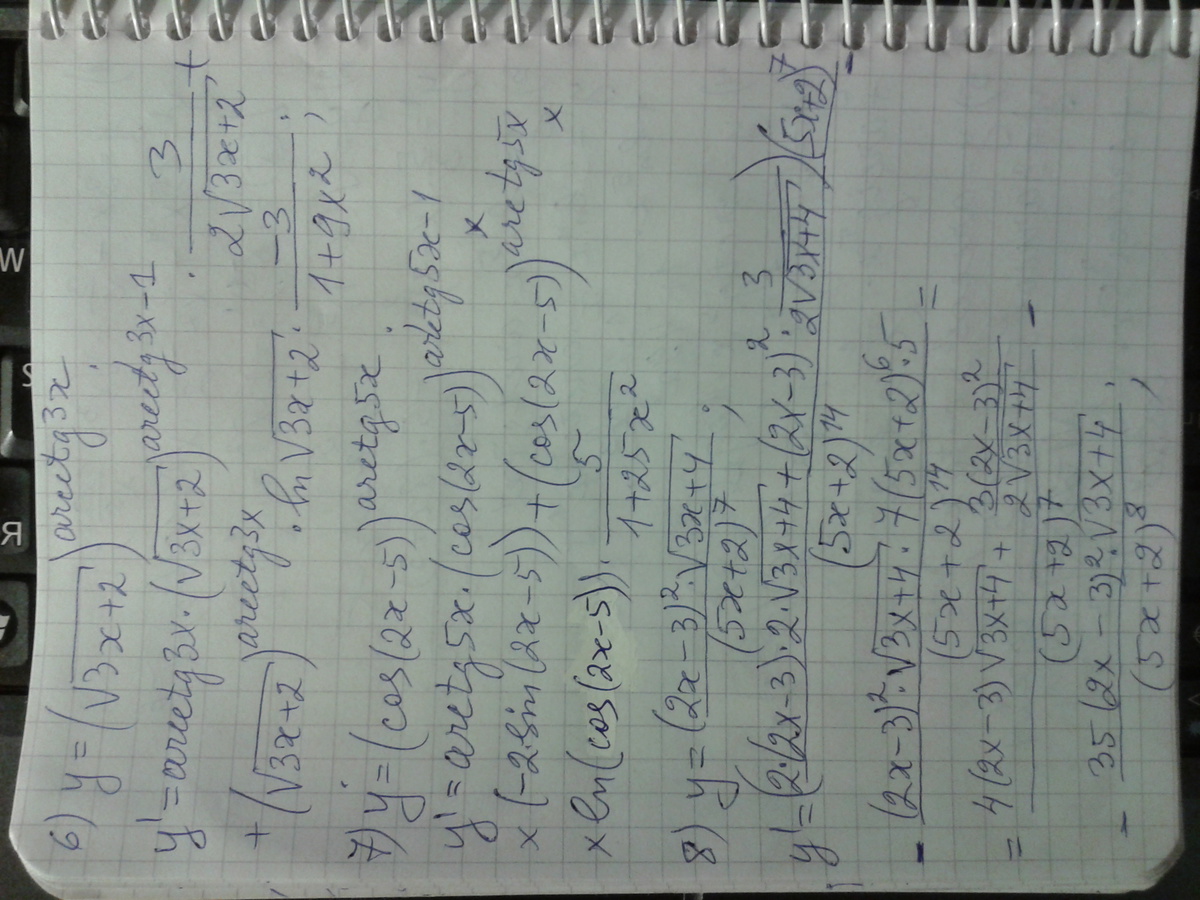 6) y = (√3x+2)^arcctg3x;
y' = arcctg3x · (√3x+2)^arcctg3x-1 · 3/2√3x+2 +
+ (√3x+2)^arcctg3x · ln√3x+2 · -3/1+9x2;
7) y = (cos(2x-5))^arctg5x;
y' = arctg5x · (cos(2x-5))^arctg5x-1 x
x (-2sin(2x-5)) + (cos(2x-5))^arctg5x x
x ln(cos(2x-5)) · 5/1+25x²
8) y = (2x-3)²·√3x+4/(5x+2)⁷;
y' = (2·(2x-3)·2·√3x+4 + (2x-3)²·3/2√3x+4)(5x+2)⁷/(5x+2)¹⁴ -
- (2x-3)²·√3x+4·7(5x+2)⁶·5/(5x+2)¹⁴ =
= 4(2x-3)√3x+4 + 3(2x-3)²/2√3x+4/(5x+2)⁷ -
- 35(2x-3)²·√3x+4/(5x+2)⁸;
W
S
Я